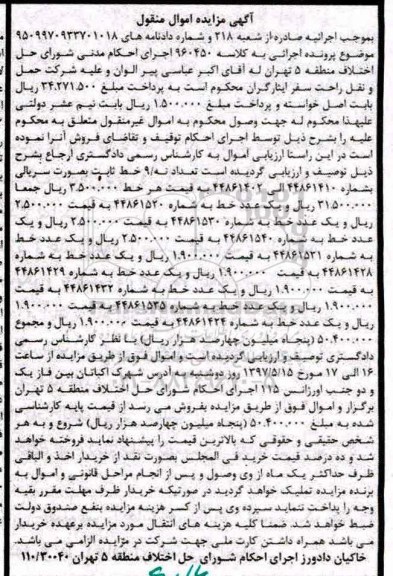 آگهی مزایده اموال منقول
بموجب اجرائیه صادره از شعبه ۲۱۸ و شماره دادنامه های ۹۵۰۹۹۷۰۹۳۳۷۰۱۰۱۸
موضوع پرونده اجرائی به کلاسه ۹۶۰۴۵۰ اجرای احکام مدنی شورای حل
اختلاف منطقه ۵ تهران له آقای اکبر عباسی پیر الوان و علیه شرکت حمل
و نقل راحت سفر ایثارگران محکوم است به پرداخت مبلغ ۳۴.۲۷۱.۵۰۰ ریال
بابت اصل خواسته و پرداخت مبلغ ۱.۵۰۰.۰۰۰ ریال بابت نیم عشر دولتی
علیهذا محکوم له جهت وصول محکوم به اموال غیرمنقول متعلق به محکوم
علیه را بشرح ذیل توسط اجرای احکام توقیف و تقاضای فروش آنرا نموده
است در این راستا ارزیابی اموال به کارشناس رسمی دادگستری ارجاع بشرح
ذیل توصیف و ارزیابی گردیده است تعداد نه/۹ خط ثابت بصورت سریالی
بشماره ۴۴۸۶۱۴۱۰ الی ۴۴۸۶۱۴۰۲ به قیمت هر خط ۳.۵۰۰.۰۰۰ ریال جمعا
۳۱.۵۰۰.۰۰۰ ریال و یک عدد خط به شماره ۴۴۸۶۱۵۲۰ به قیمت ۲.۵۰۰.۰۰۰
ریال و یک عدد خط به شماره ۴۴۸۶۱۵۳۰ به قیمت ۲.۵۰۰.۰۰۰ ریال و یک
عدد خط به شماره ۴۴۸۶۱۵۴۰ به قیمت ۲.۵۰۰.۰۰۰ ریال و یک عدد خط
به شماره ۴۴۸۶۱۵۲۱ به قیمت ۱.۹۰۰.۰۰۰ ریال و یک عدد خط به شماره
۴۴۸۶۱۴۲۸ به قیمت ۱.۹۰۰.۰۰۰ ریال و یک عدد خط به شماره ۴۴۸۶۱۴۲۹
به قیمت ۱.۹۰۰.۰۰۰ ریال و یک عدد خط به شماره ۴۴۸۶۱۴۳۲ به قیمت
۱.۹۰۰.۰۰۰ ریال و یک عدد خط به شماره ۴۴۸۶۱۵۳۵ به قیمت ۱.۹۰۰.۰۰۰
ریال و یک عدد خط به شماره ۴۴۸۶۱۴۲۴ به قیمت ۱.۹۰۰.۰۰۰ ریال و مجموع
۵۰.۴۰۰.۰۰۰ (پنجاه میلیون چهارصد هزار ریال) با نظر کارشناس رسمی
دادگستری توصیف و ارزیابی گردیده است و اموال فوق از طریق مزایده از ساعت
۱۶ الی ۱۷ مورخ ۱۳۹۷/۵/۱۵ روز دوشنبه به آدرس شهرک اکباتان بین فاز یک
و دو جنب اورژانس ۱۱۵ اجرای احکام شورای حل اختلاف منطقه ۵ تهران
برگزار و اموال فوق از طریق مزایده بفروش می رسد از قیمت پایه کارشناسی
شده به مبلغ ۵۰.۴۰۰.۰۰۰ (پنجاه میلیون چهارصد هزار ریال) شروع و به هر
شخص حقیقی و حقوقی که بالاترین قیمت را پیشنهاد نماید فروخته خواهد
شد و ده درصد قیمت خرید فی المجلس بصورت نقد از خریدار اخذ و الباقی
ظرف حداکثر یک ماه از وی وصول و پس از انجام مراحل قانونی و اموال به
برنده مزایده تملیک خواهد گردید در صورتیکه خریدار ظرف مهلت مقرر بقیه
وجه را پرداخت ننماید سپرده وی پس از کسر هزینه مزایده بنفع صندوق دولت
ضبط خواهد شد. ضمنا کلیه هزینه های انتقال مورد مزایده برعهده خریدار
می باشد همراه داشتن کارت ملی جهت شرکت در مزایده الزامی می باشد.
خاکیان دادورز اجرای احکام شورای حل اختلاف منطقه ۵ تهران ۱۱۰/۳۰۰۴۰